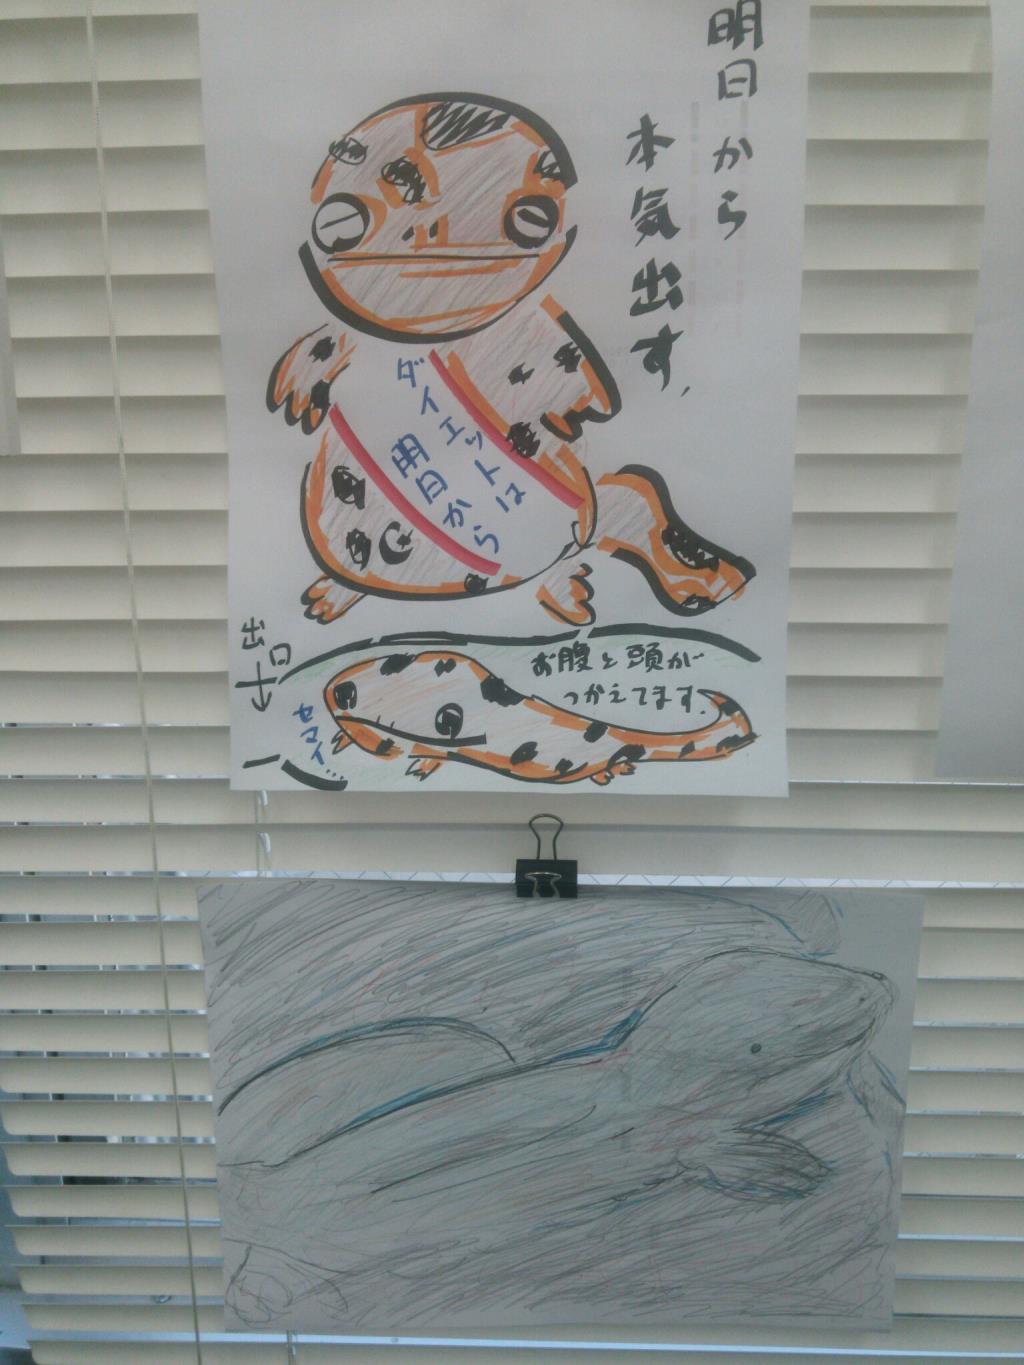 明日から
本気出す。
ダイエットは
明日から
出口
セマイ…
お腹と頭が
つかえてます。